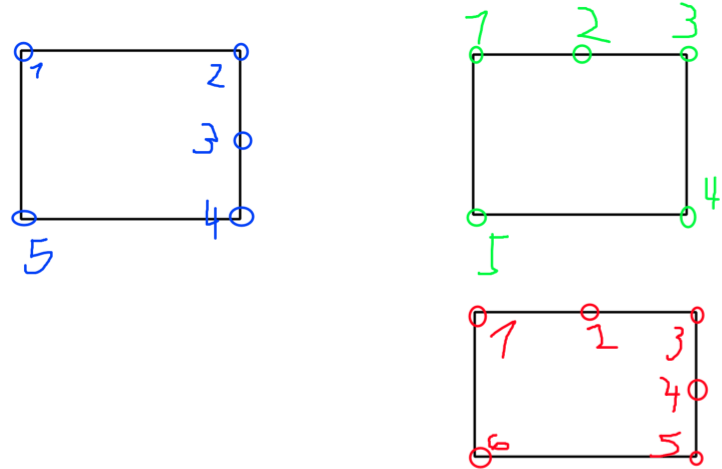 1 2
3
4
5
1 2 3
4
5
1 2 3
4
5
6